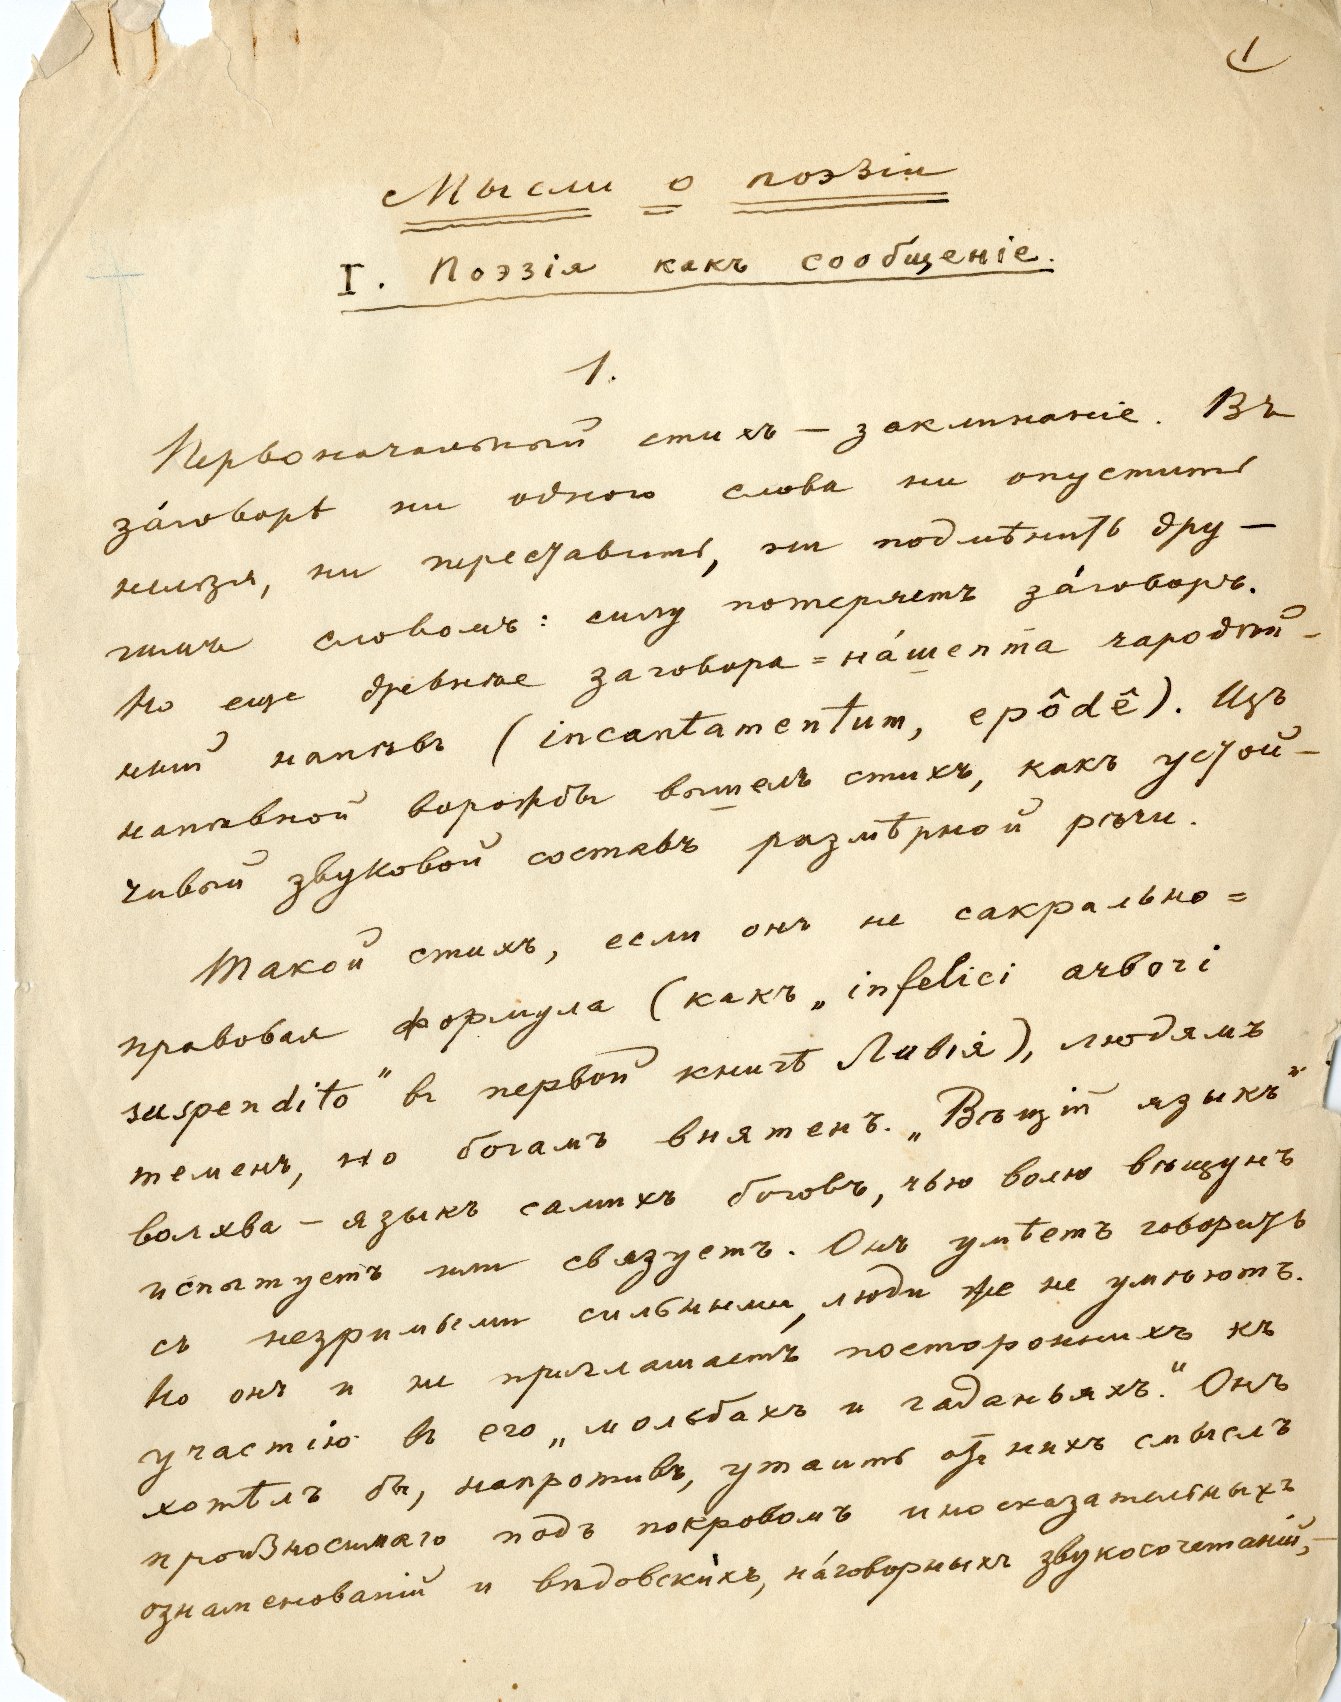 1
Мысли о поэзіи
I. Поэзія какъ сообщеніе.
1.
Первоначальный стихъ – заклинаніе. Въ
за́говорѣ ни одного слова ни опустить
нельзя, ни переставить, ни подмѣнить дру–
гимъ словомъ: силу потеряетъ за́говоръ.
Но еще древнѣе заговора = на́шепта чародѣй–
ный напѣвъ (incantamentum, epôdê). Изъ
напѣвной ворожбы вышелъ стихъ, какъ устой–
чивый звуковой составъ размѣрной рѣчи.
Такой стихъ, если онъ не сакрально=
правовая формула (какъ „infelici arbori
suspendito” въ первой книгѣ Ливія), людямъ
теменъ, но богамъ внятенъ. „Вѣщій языкъ”
волхва – языкъ самихъ боговъ, чью волю вѣщунъ
испытуетъ или связуетъ. Онъ умѣетъ говорить
съ незримыми сильными, люди же не умѣютъ.
Но онъ и не приглашаетъ постороннихъ къ
участію въ его „мольбахъ и гаданьяхъ.“ Онъ
хотѣлъ бы, напротивъ, утаить отъ нихъ смыслъ
произносимаго подъ покровомъ иносказательныхъ
ознаменованій и вѣдовскихъ, на́говорныхъ звукосочетаній, –